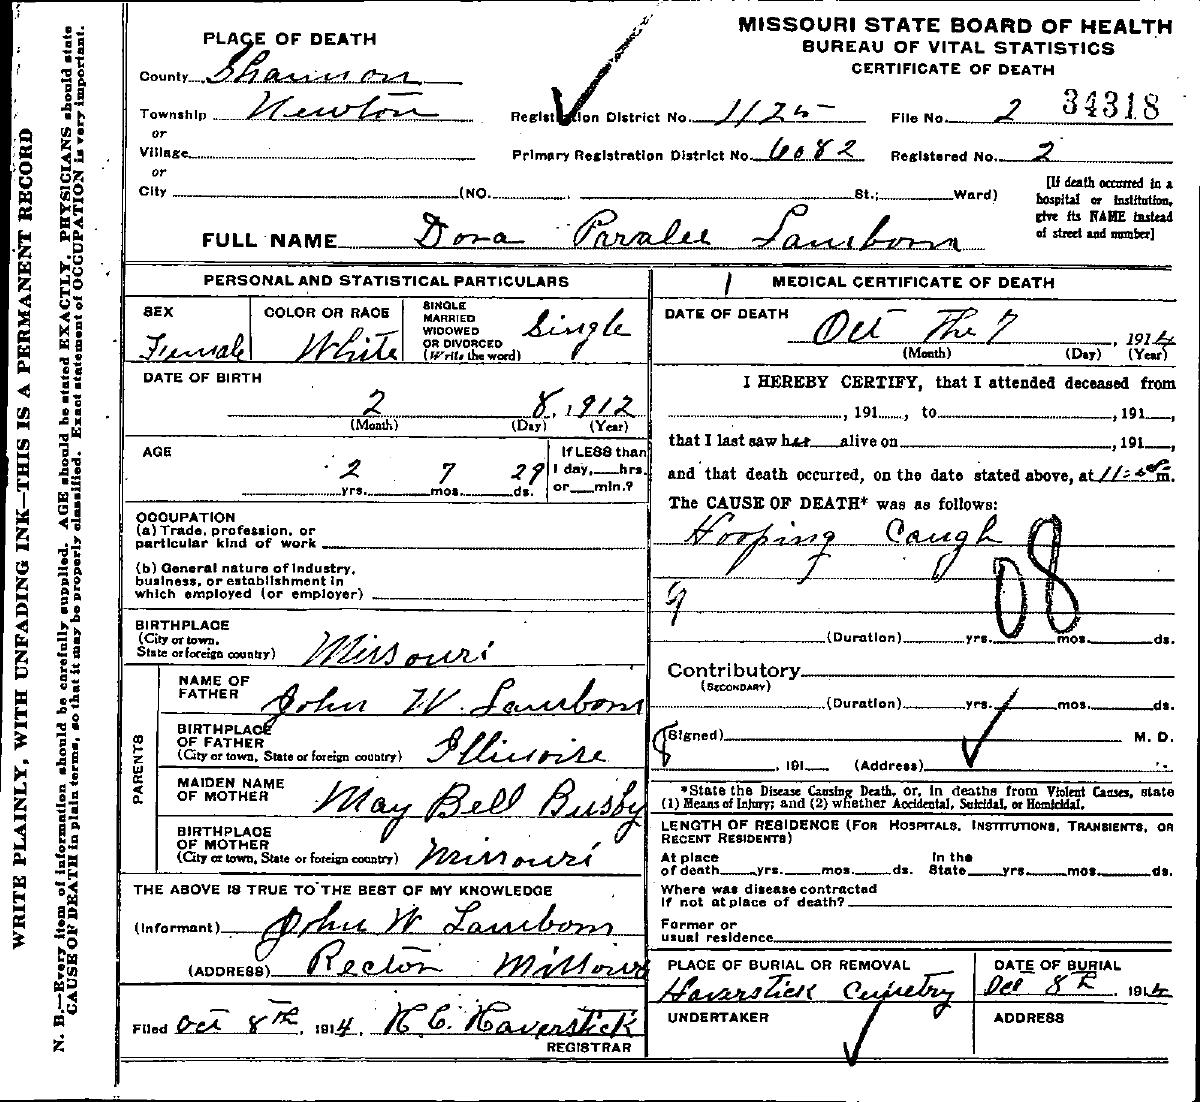 WRITE PLAINLY, WITH UNFADING INK—THIS IS A PERMANENT RECORD
N. B.—Every item of information should be carefully supplied. AGE should be stated EXACTLY. PHYSICIANS should state
CAUSE OF DEATH in plain terms, so that it may be properly classified. Exact statement of OCCUPATION is very important.
MISSOURI STATE BOARD OF HEALTH
BUREAU OF VITAL STATISTICS
CERTIFICATE OF DEATH
PLACE OF DEATH
County Shannon
Township Newton
or
Village
or
City (NO. St.; Ward)
Registration District No. 1125
File No. 2 34318
Primary Registration District No. 6082
Registered No. 2
[If death occurred in a
hospital or institution,
give its NAME instead
of street and number]
FULL NAME Dora Paralee Lamborn
PERSONAL AND STATISTICAL PARTICULARS
SEX
Female
COLOR OR RACE
White
SINGLE
MARRIED
WIDOWED
OR DIVORCED
(Write the word)
Single
DATE OF BIRTH
2 8, 1912
(Month) (Day) (Year)
AGE
2 yrs. 7 mos. 29 ds.
If LESS than
1 day, hrs.
or min.?
OCCUPATION
(a) Trade, profession, or
particular kind of work
(b) General nature of industry,
business, or establishment in
which employed (or employer)
BIRTHPLACE
(City or town,
State or foreign country) Missouri
PARENTS
NAME OF
FATHER John W. Lamborn
BIRTHPLACE
OF FATHER
(City or town, State or foreign country) Illinoise
MAIDEN NAME
OF MOTHER May Bell Busby
BIRTHPLACE
OF MOTHER
(City or town, State or foreign country) Missouri
THE ABOVE IS TRUE TO THE BEST OF MY KNOWLEDGE
(Informant) John W Lamborn
(ADDRESS) Rector Missouri
Filed Oct 8th, 1914, H. C. Haverstick
REGISTRAR
1 MEDICAL CERTIFICATE OF DEATH
DATE OF DEATH
Oct The 7, 1914
(Month) (Day) (Year)
I HEREBY CERTIFY, that I attended deceased from
, 191 , to , 191 ,
that I last saw her alive on , 191 ,
and that death occurred, on the date stated above, at m.
The CAUSE OF DEATH* was as follows:
Hooping Caugh
08
9
(Duration) yrs. mos. ds.
Contributory
(SECONDARY)
(Duration) yrs. mos. ds.
8 (Signed) M. D.
, 191 (Address)
*State the Disease Causing Death, or, in deaths from Violent Causes, state
(1) Means of Injury; and (2) whether Accidental, Suicidal, or Homicidal.
LENGTH OF RESIDENCE (FOR HOSPITALS, INSTITUTIONS, TRANSIENTS, OR
RECENT RESIDENTS)
At place
of death yrs. mos. ds.
In the
State yrs. mos. ds.
Where was disease contracted
if not at place of death?
Former or
usual residence
PLACE OF BURIAL OR REMOVAL
Haverstick Cemetry
DATE OF BURIAL
Oct 8th, 1914
UNDERTAKER
ADDRESS